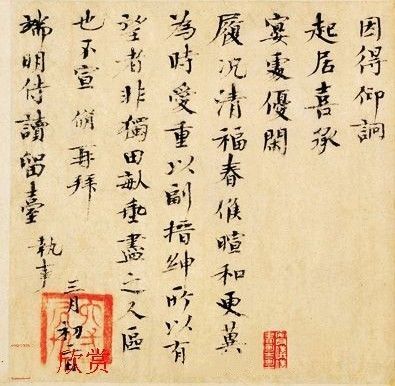 因得仰詗
起居喜承
宴處優閑
履況清福春候暄和更冀
為時愛重以副搢紳所以有
望者非獨田畝垂盡之人區
也不宣 脩再拜
端明侍讀留臺 執事
三月初二日
欣赏